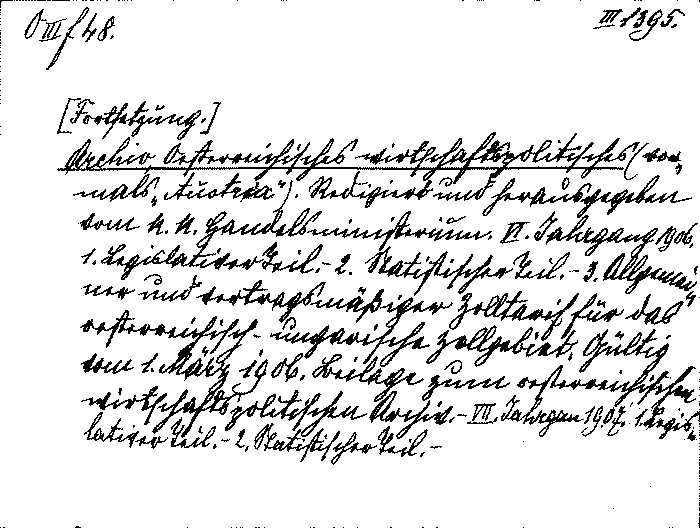 O III f 48.
III 1395.
[Fortsetzung.]
Archiv, Oesterreichisches wirtschaftspolitisches (vor-
mals „Austria"). Redigiert und herausgegeben
vom k. k. Handelsministerium. VI. Jahrgang 1906,
1. Legislativer Teil. - 2. Statistischer Teil. - 3. Allgemei-
ner und vertragsmäßiger Zolltarif für das
oesterreichisch-ungarische Zollgebiet. Gültig
vom 1. März 1906. Beilage zum oesterreichischen
wirtschaftspolitischen Archiv. - VII. Jahrgan 1907. 1. Legis-
lativer Teil. - 2. Statistischer Teil. -